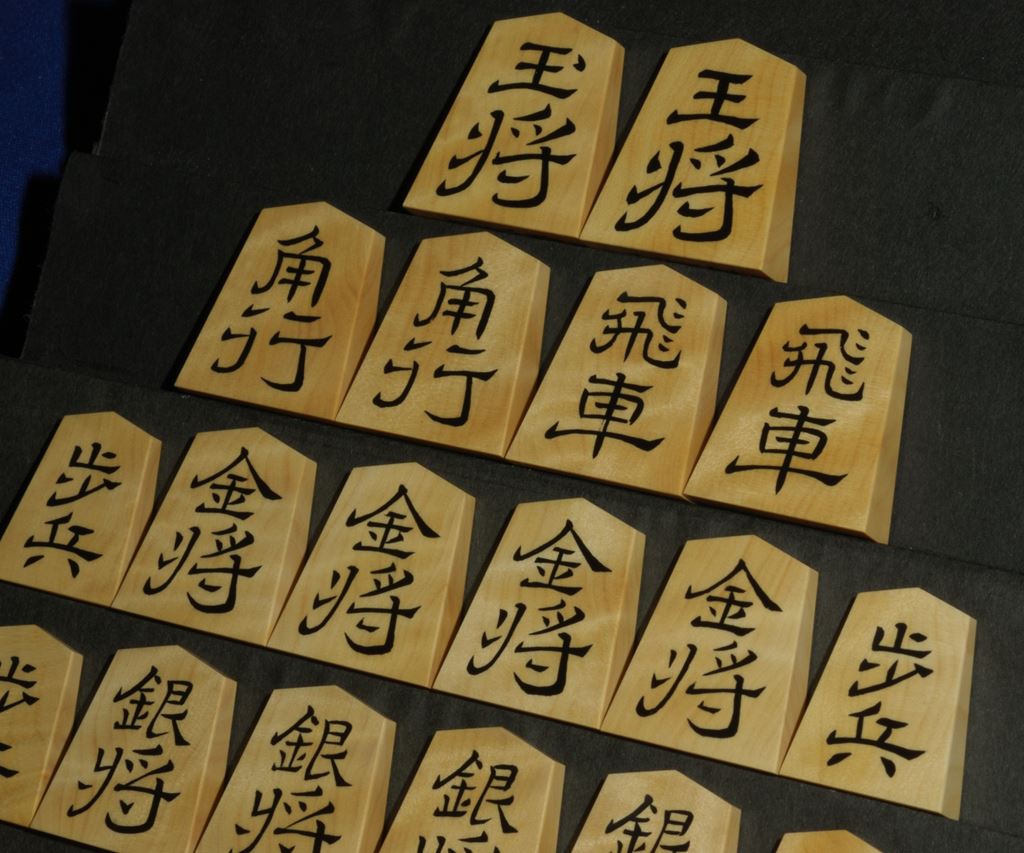 玉将 王将
角行 角行 飛車 飛車
歩兵 金将 金将 金将 金将 歩兵
歩 銀将 銀将 銀 銀